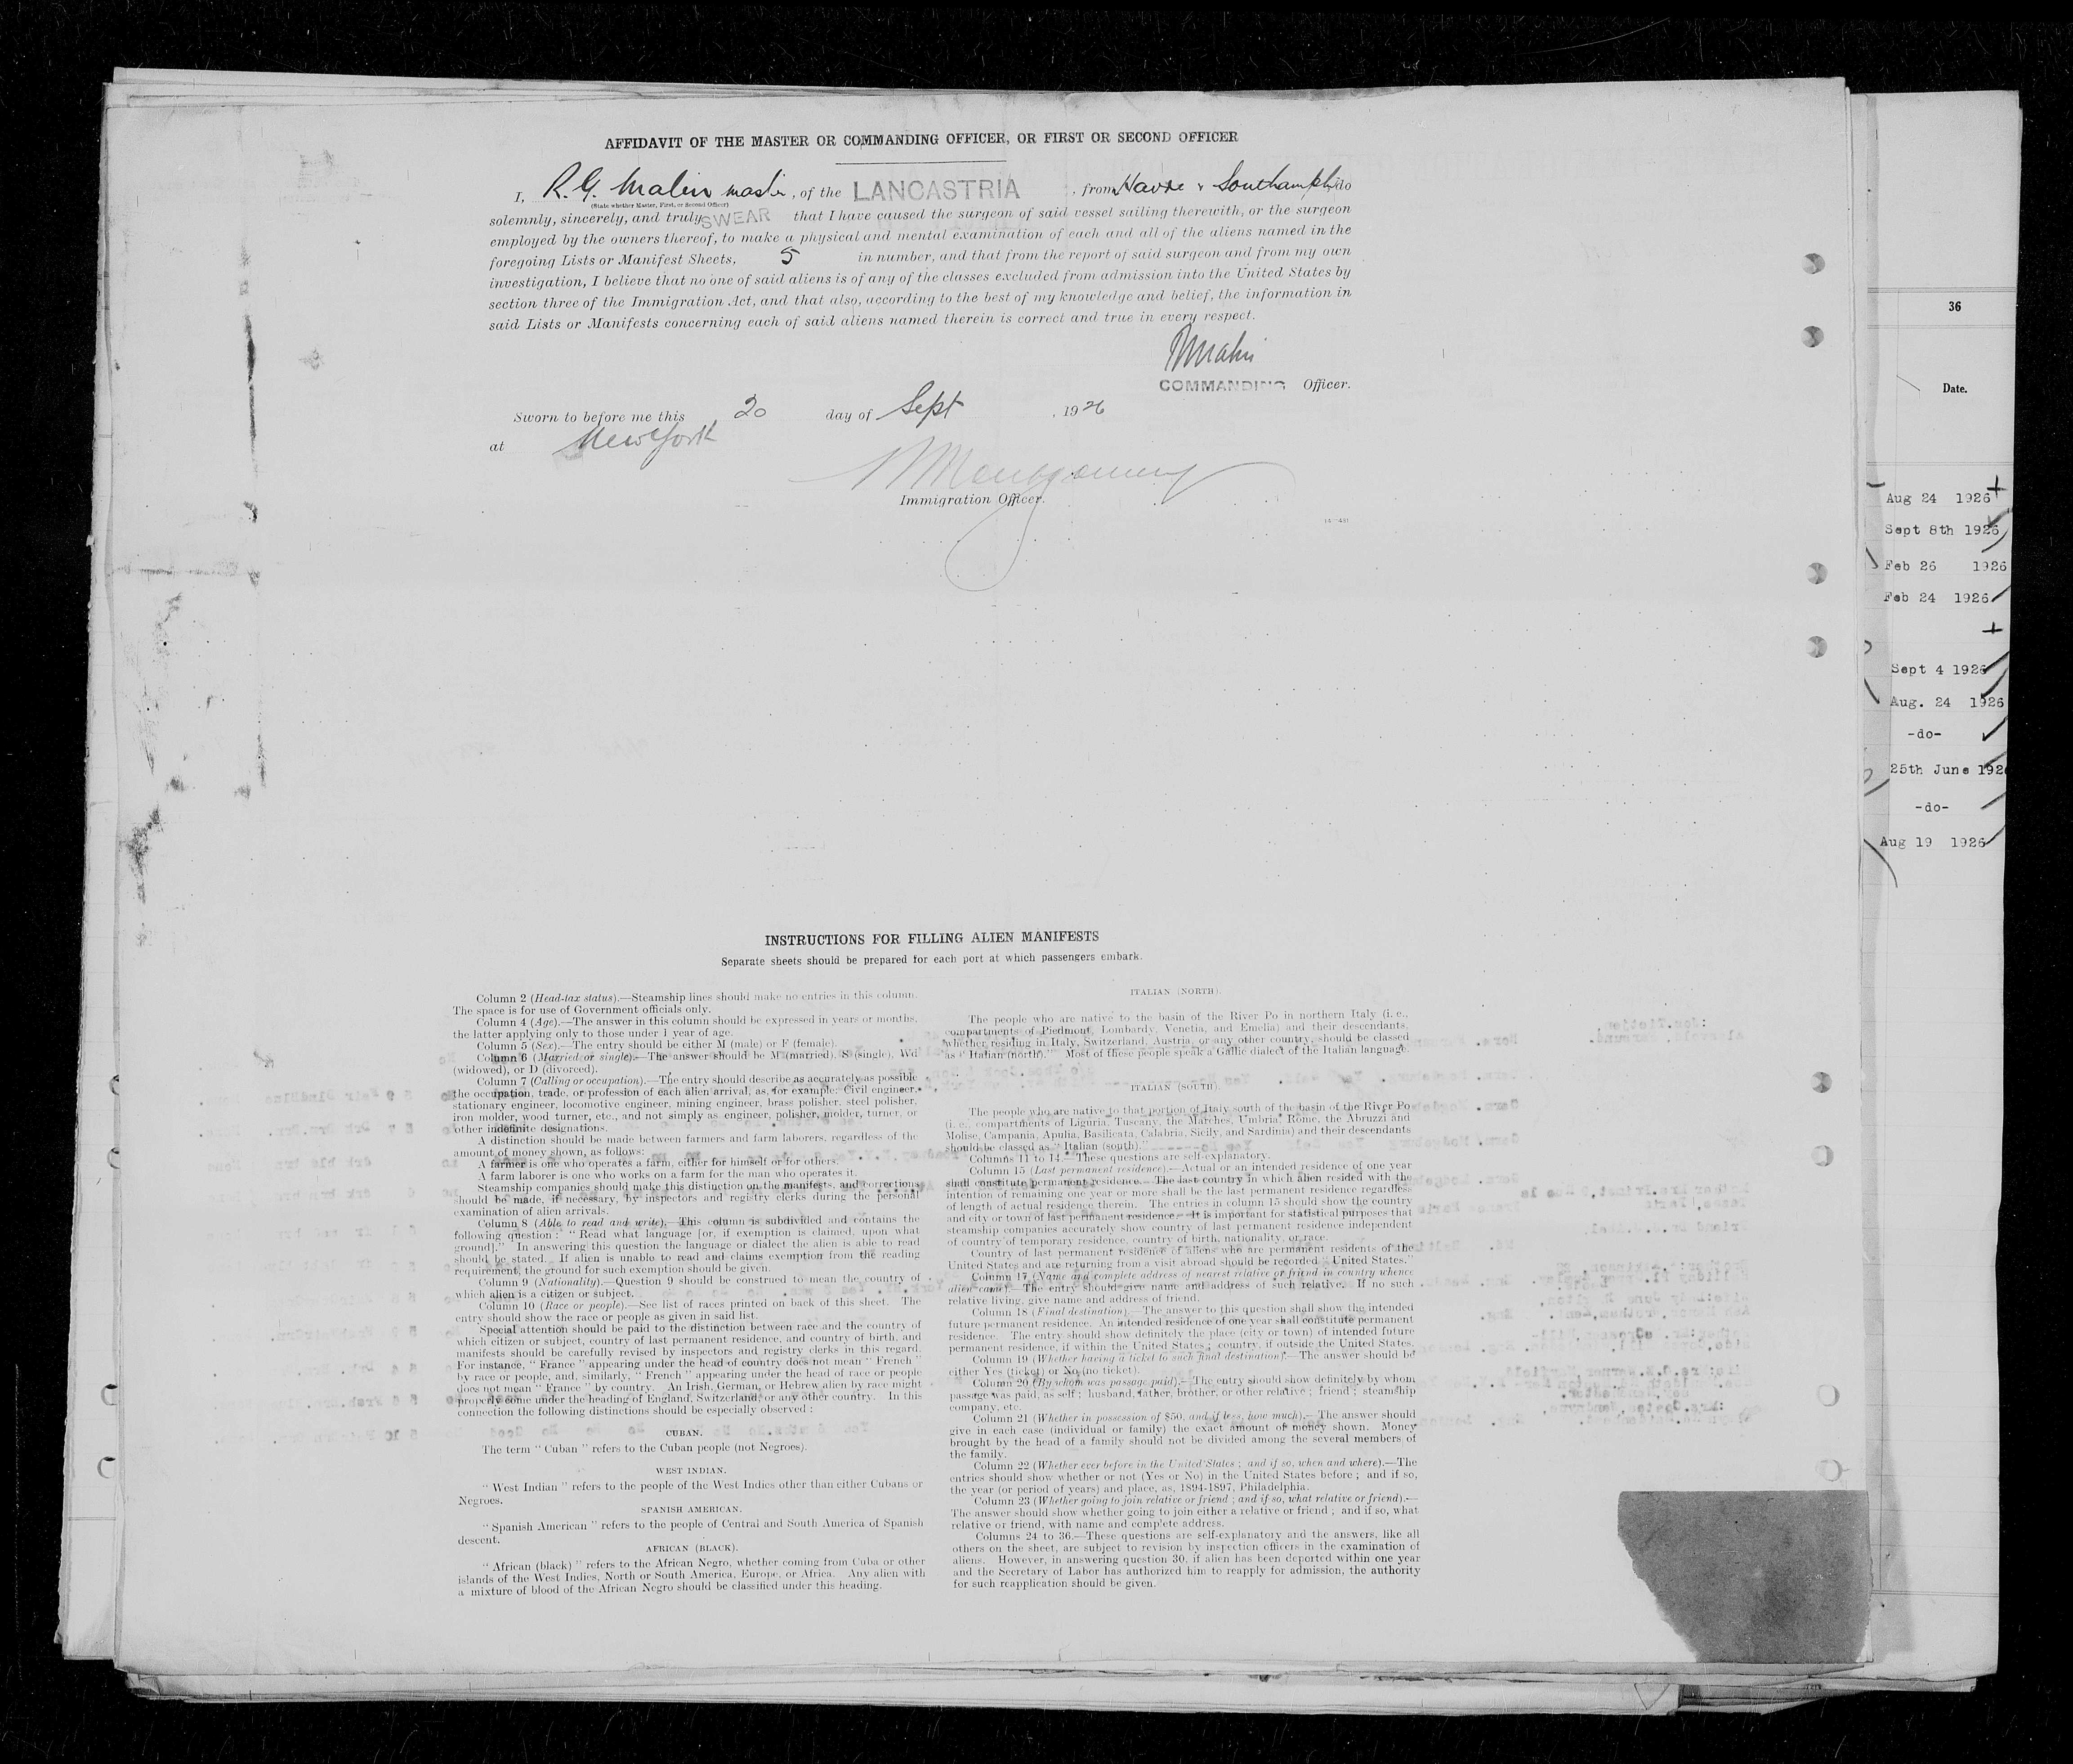 AFFIDAVIT OF THE MASTER OR COMMANDING OFFICER, OR FIRST OR SECOND OFFICER
I, R. G. Malin master, of the LANCASTRIA, from Havre & Southampton, do
(State whether Master, First, or Second Officer)
solemnly, sincerely, and truly SWEAR that I have caused the surgeon of said vessel sailing therewith, or the surgeon
employed by the owners thereof, to make a physical and mental examination of each and all of the aliens named in the
foregoing Lists or Manifest Sheets, 5 in number, and that from the report of said surgeon and from my own
investigation, I believe that no one of said aliens is of any of the classes excluded from admission into the United States by
section three of the Immigration Act, and that also, according to the best of my knowledge and belief, the information in
said Lists or Manifests concerning each of said aliens named therein is correct and true in every respect.
RMalin
COMMANDING Officer.
Sworn to before me this 20 day of Sept, 1926
at New York
Montgomery
Immigration Officer.
INSTRUCTIONS FOR FILLING ALIEN MANIFESTS
Separate sheets should be prepared for each port at which passengers embark.
Column 2 (Head-tax status).—Steamship lines should make no entries in this column.
The space is for use of Government officials only.
Column 4 (Age).—The answer in this column should be expressed in years or months,
the latter applying only to those under 1 year of age.
Column 5 (Sex).—The entry should be either M (male) or F (female).
Column 6 (Married or single).—The answer should be M (married), S (single), Wd
(widowed), or D (divorced).
Column 7 (Calling or occupation).—The entry should describe as accurately as possible
the occupation, trade, or profession of each alien arrival, as, for example: Civil engineer,
stationary engineer, locomotive engineer, mining engineer, brass polisher, steel polisher,
iron molder, wood turner, etc., and not simply as engineer, polisher, molder, turner, or
other indefinite designations.
A distinction should be made between farmers and farm laborers, regardless of the
amount of money shown, as follows:
A farmer is one who operates a farm, either for himself or for others.
A farm laborer is one who works on a farm for the man who operates it.
Steamship companies should make this distinction on the manifests, and corrections
should be made, if necessary, by inspectors and registry clerks during the personal
examination of alien arrivals.
Column 8 (Able to read and write).—This column is subdivided and contains the
following question : " Read what language [or, if exemption is claimed, upon what
ground]." In answering this question the language or dialect the alien is able to read
should be stated. If alien is unable to read and claims exemption from the reading
requirement, the ground for such exemption should be given.
Column 9 (Nationality).—Question 9 should be construed to mean the country of
which alien is a citizen or subject.
Column 10 (Race or people).—See list of races printed on back of this sheet. The
entry should show the race or people as given in said list.
Special attention should be paid to the distinction between race and the country of
which citizen or subject, country of last permanent residence, and country of birth, and
manifests should be carefully revised by inspectors and registry clerks in this regard.
For instance, " France " appearing under the head of country does not mean " French "
by race or people, and, similarly, " French " appearing under the head of race or people
does not mean " France " by country. An Irish, German, or Hebrew alien by race might
properly come under the heading of England, Switzerland, or any other country. In this
connection the following distinctions should be especially observed :
CUBAN.
The term " Cuban " refers to the Cuban people (not Negroes).
WEST INDIAN.
" West Indian " refers to the people of the West Indies other than either Cubans or
Negroes.
SPANISH AMERICAN.
" Spanish American " refers to the people of Central and South America of Spanish
descent.
AFRICAN (BLACK).
" African (black) " refers to the African Negro, whether coming from Cuba or other
islands of the West Indies, North or South America, Europe, or Africa. Any alien with
a mixture of blood of the African Negro should be classified under this heading.
ITALIAN (NORTH).
The people who are native to the basin of the River Po in northern Italy (i. e.,
compartments of Piedmont, Lombardy, Venetia, and Emelia) and their descendants,
whether residing in Italy, Switzerland, Austria, or any other country, should be classed
as " Italian (north)." Most of these people speak a Gallic dialect of the Italian language.
ITALIAN (SOUTH).
The people who are native to that portion of Italy south of the basin of the River Po
(i. e., compartments of Liguria, Tuscany, the Marches, Umbria, Rome, the Abruzzi and
Molise, Campania, Apulia, Basilicata, Calabria, Sicily, and Sardinia) and their descendants
should be classed as " Italian (south)."
Columns 11 to 14.—These questions are self-explanatory.
Column 15 (Last permanent residence).—Actual or an intended residence of one year
shall constitute permanent residence. The last country in which alien resided with the
intention of remaining one year or more shall be the last permanent residence regardless
of length of actual residence therein. The entries in column 15 should show the country
and city or town of last permanent residence. It is important for statistical purposes that
steamship companies accurately show country of last permanent residence independent
of country of temporary residence, country of birth, nationality, or race.
Country of last permanent residence of aliens who are permanent residents of the
United States and are returning from a visit abroad should be recorded " United States."
Column 17 (Name and complete address of nearest relative or friend in country whence
alien came).—The entry should give name and address of such relative. If no such
relative living, give name and address of friend.
Column 18 (Final destination).—The answer to this question shall show the intended
future permanent residence. An intended residence of one year shall constitute permanent
residence. The entry should show definitely the place (city or town) of intended future
permanent residence, if within the United States ; country, if outside the United States.
Column 19 (Whether having a ticket to such final destination).—The answer should be
either Yes (ticket) or No (no ticket).
Column 20 (By whom was passage paid).—The entry should show definitely by whom
passage was paid, as self ; husband, father, brother, or other relative ; friend ; steamship
company, etc.
Column 21 (Whether in possession of $50, and if less, how much).—The answer should
give in each case (individual or family) the exact amount of money shown. Money
brought by the head of a family should not be divided among the several members of
the family.
Column 22 (Whether ever before in the United States ; and if so, when and where).—The
entries should show whether or not (Yes or No) in the United States before ; and if so,
the year (or period of years) and place, as, 1894-1897, Philadelphia.
Column 23 (Whether going to join relative or friend ; and if so, what relative or friend).—
The answer should show whether going to join either a relative or friend ; and if so, what
relative or friend, with name and complete address.
Columns 24 to 36.—These questions are self-explanatory and the answers, like all
others on the sheet, are subject to revision by inspection officers in the examination of
aliens. However, in answering question 30, if alien has been deported within one year
and the Secretary of Labor has authorized him to reapply for admission, the authority
for such reapplication should be given.
36
Date.
Aug 24 1926
Sept 8th 1926
Feb 26 1926
Feb 24 1926
Sept 4 1926
Aug. 24 1926
-do-
25th June 192
-do-
Aug 19 1926